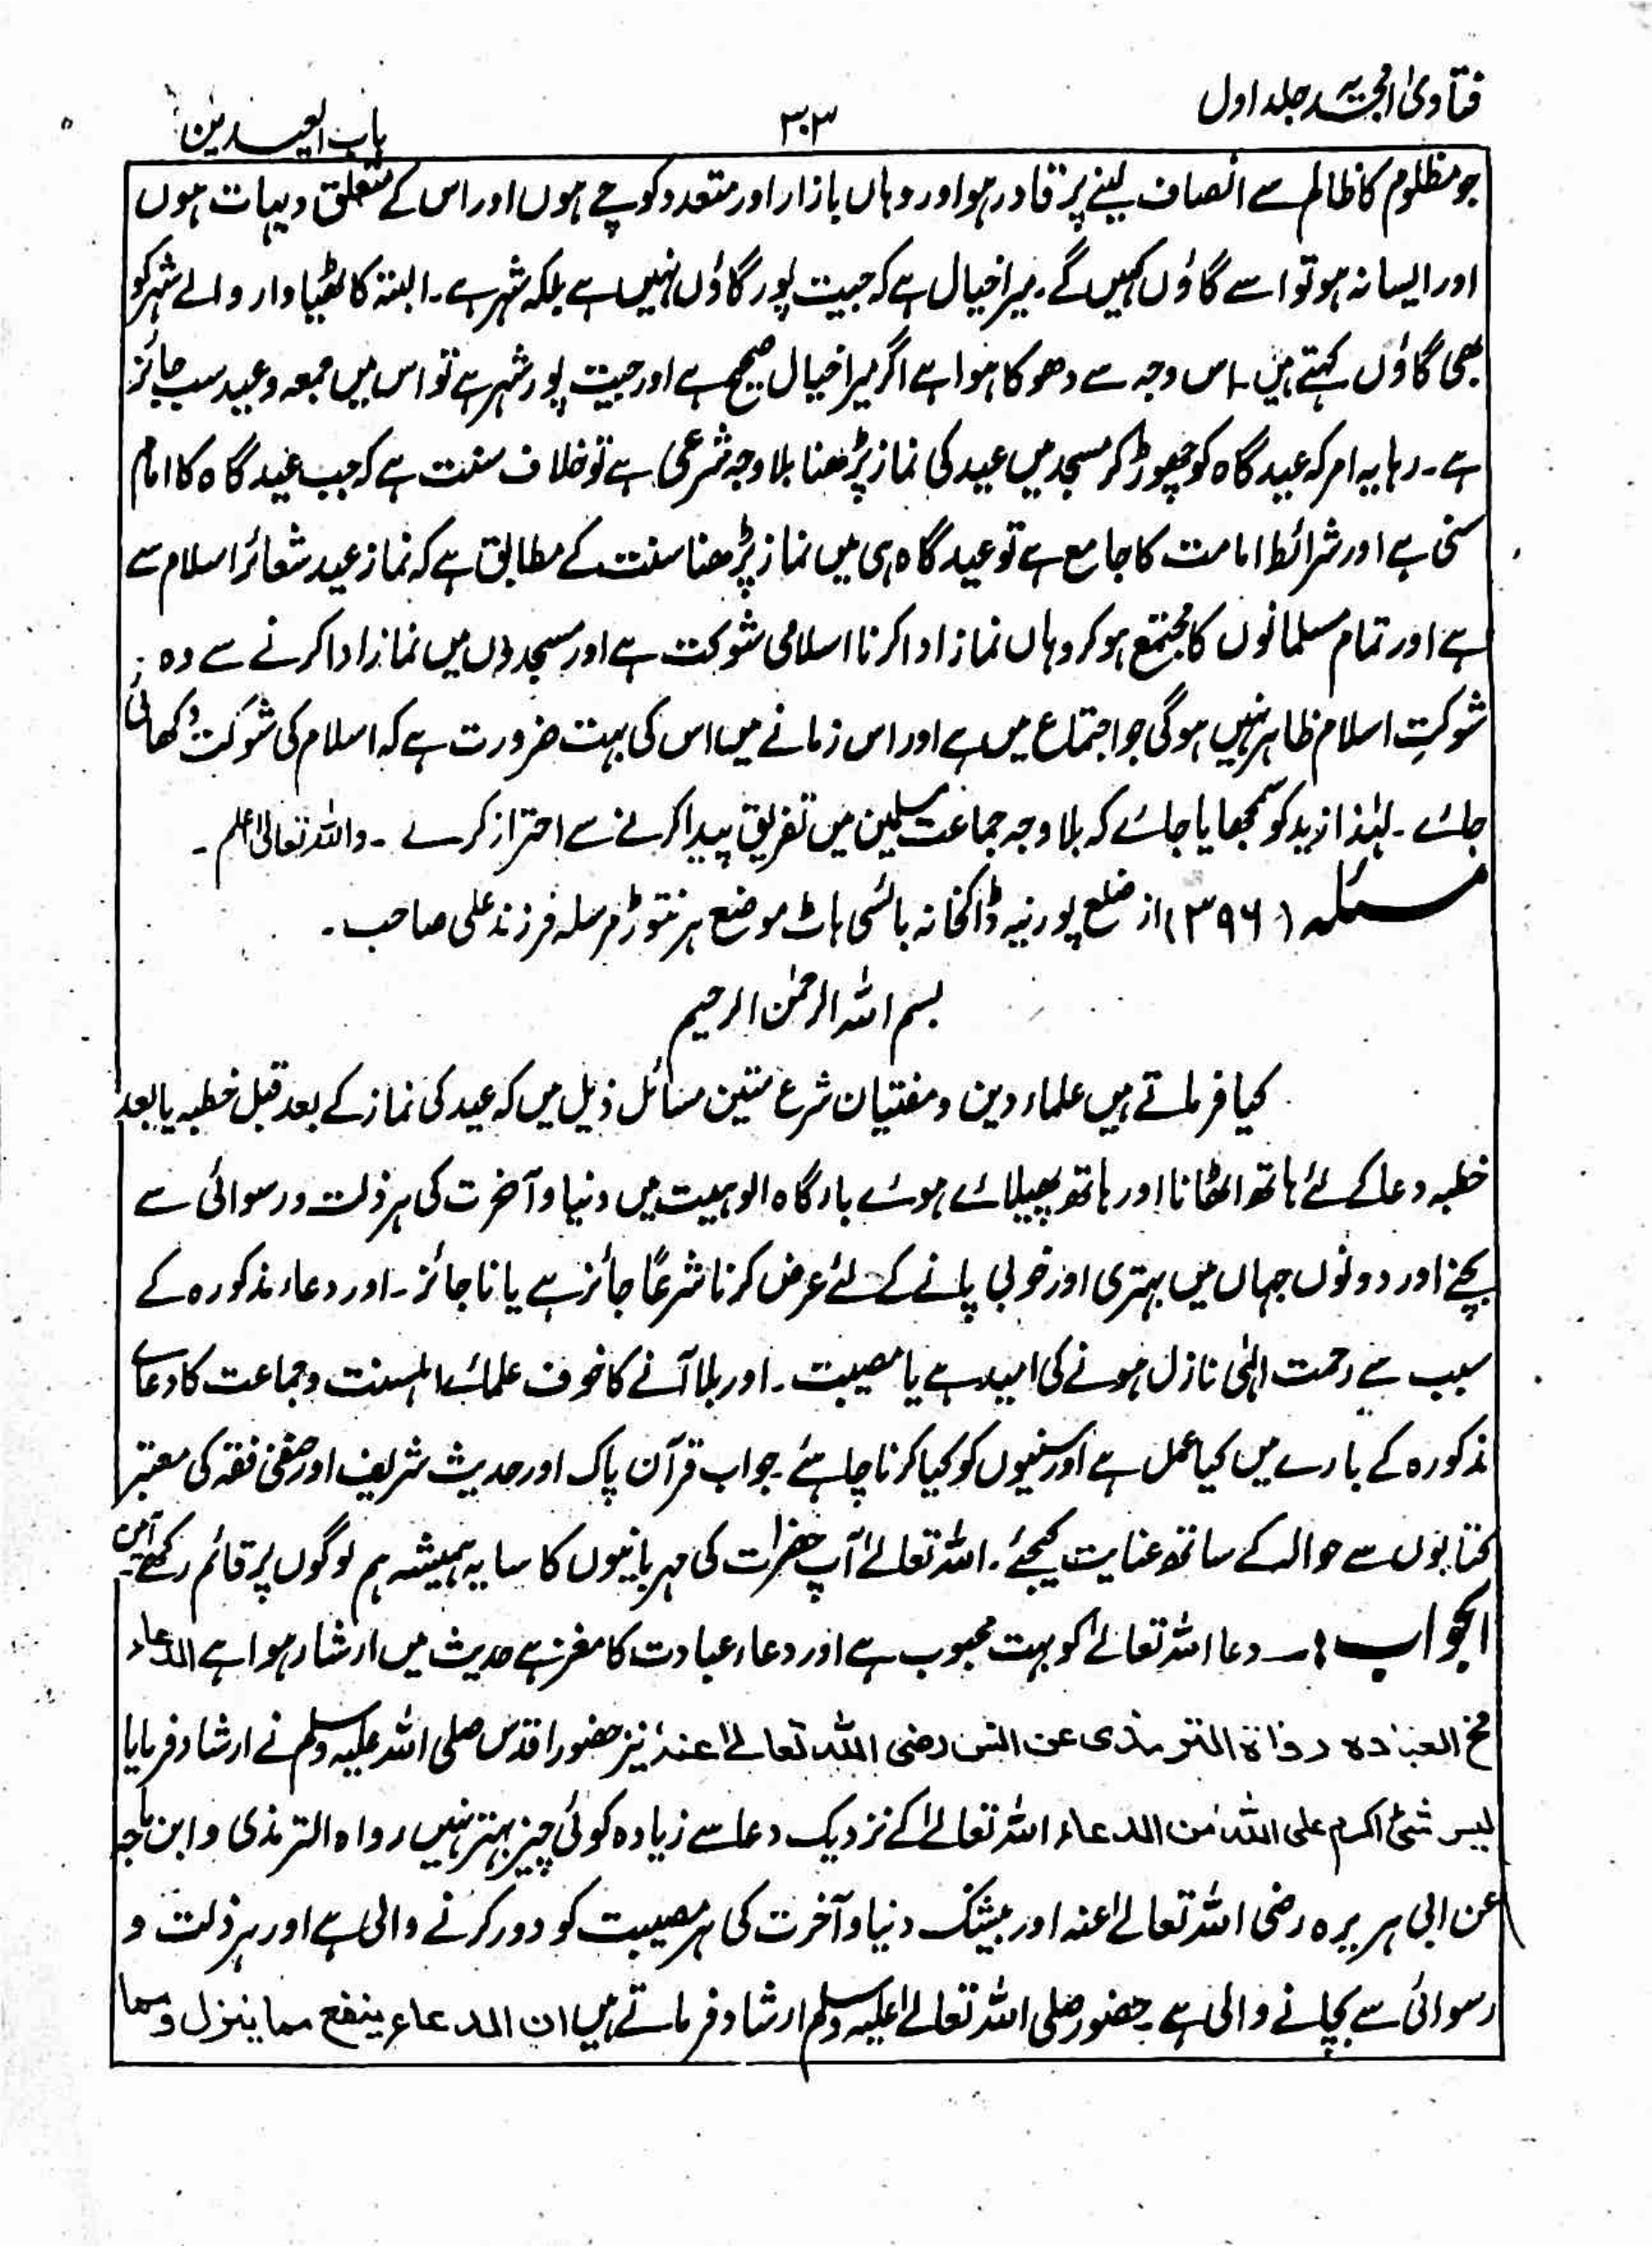 فتاویٰ امجدیہ جلد اول
۳۰۳
باب العیدین
جو مظلوم کا ظالم سے انصاف لینے پر قادر ہو اور وہاں بازار اور متعدد کوچے ہوں اور اس کے متعلق دیہات ہوں
اور ایسا نہ ہو تو اسے گاؤں کہیں گے۔ میرا خیال ہے کہ جیت پور گاؤں نہیں ہے بلکہ شہر ہے۔ البتہ کاٹھیاوار والے شہر کو
بھی گاؤں کہتے ہیں۔ اس وجہ سے دھوکا ہوا ہے اگر میرا خیال صحیح ہے اور جیت پور شہر ہے تو اس میں جمعہ و عید سب جائز
ہے۔ رہا یہ امر کہ عید گاہ کو چھوڑ کر مسجد میں عید کی نماز پڑھنا بلا وجہ شرعی ہے تو خلاف سنت ہے کہ جب عید گاہ کا امام
سنی ہے اور شرائط امامت کا جامع ہے تو عید گاہ ہی میں نماز پڑھنا سنت کے مطابق ہے کہ نماز عید شعائر اسلام سے
ہے اور تمام مسلمانوں کا مجتمع ہو کر وہاں نماز ادا کرنا اسلامی شوکت ہے اور مسجدوں میں نماز ادا کرنے سے وہ
شوکتِ اسلام ظاہر نہیں ہوگی جو اجتماع میں ہے اور اس زمانے میں اس کی بہت ضرورت ہے کہ اسلام کی شوکت دکھائی
جائے۔ لہٰذا زید کو سمجھایا جائے کہ بلا وجہ جماعت مسلمین میں تفریق پیدا کرنے سے احتراز کرے ۔ واللہ تعالیٰ اعلم ۔
مسئلہ (۳۹۶) از ضلع پورنیہ ڈاکخانہ بائسی ہاٹ موضع ہرنتوڑ مرسلہ فرزند علی صاحب ۔
بسم اللہ الرحمٰن الرحیم
کیا فرماتے ہیں علماء دین و مفتیان شرع متین مسائل ذیل میں کہ عید کی نماز کے بعد قبل خطبہ یا بعد
خطبہ دعا کے لئے ہاتھ اٹھانا اور ہاتھ پھیلائے ہوئے بارگاہ الوہیت میں دنیا و آخرت کی ہر ذلت و رسوائی سے
بچنے اور دونوں جہاں میں بہتری اور خوبی پانے کے لئے عرض کرنا شرعًا جائز ہے یا ناجائز ۔ اور دعاء مذکورہ کے
سبب سے رحمت الٰہی نازل ہونے کی امید ہے یا مصیبت ۔ اور بلا آنے کا خوف علمائے اہلسنت و جماعت کا دعائے
مذکورہ کے بارے میں کیا عمل ہے اور سنیوں کو کیا کرنا چاہئے ۔ جواب قرآن پاک اور حدیث شریف اور حنفی فقہ کی معتبر
کتابوں سے حوالہ کے ساتھ عنایت کیجئے ۔ اللہ تعالےٰ آپ حضرات کی مہربانیوں کا سایہ ہمیشہ ہم لوگوں پر قائم رکھے۔ آمین
الجواب :۔ دعا اللہ تعالےٰ کو بہت محبوب ہے اور دعاء عبادت کا مغز ہے حدیث میں ارشاد ہوا ہے الدعاء
مخ العبادہ رواۃ الترمذی عن انس رضی اللہ تعالےٰ عنہ نیز حضور اقدس صلی اللہ علیہ وسلم نے ارشاد فرمایا
لیس شئ اکرم علی اللہ من الدعاء اللہ تعالےٰ کے نزدیک دعا سے زیادہ کوئی چیز بہتر نہیں رواہ الترمذی و ابن ماجہ
عن ابی ہریرہ رضی اللہ تعالےٰ عنہ اور بیشک دنیا و آخرت کی ہر مصیبت کو دور کرنے والی ہے اور ہر ذلت و
رسوائی سے بچانے والی ہے حضور صلی اللہ تعالےٰ علیہ وسلم ارشاد فرماتے ہیں ان الدعاء ینفع مما ینزل ومما